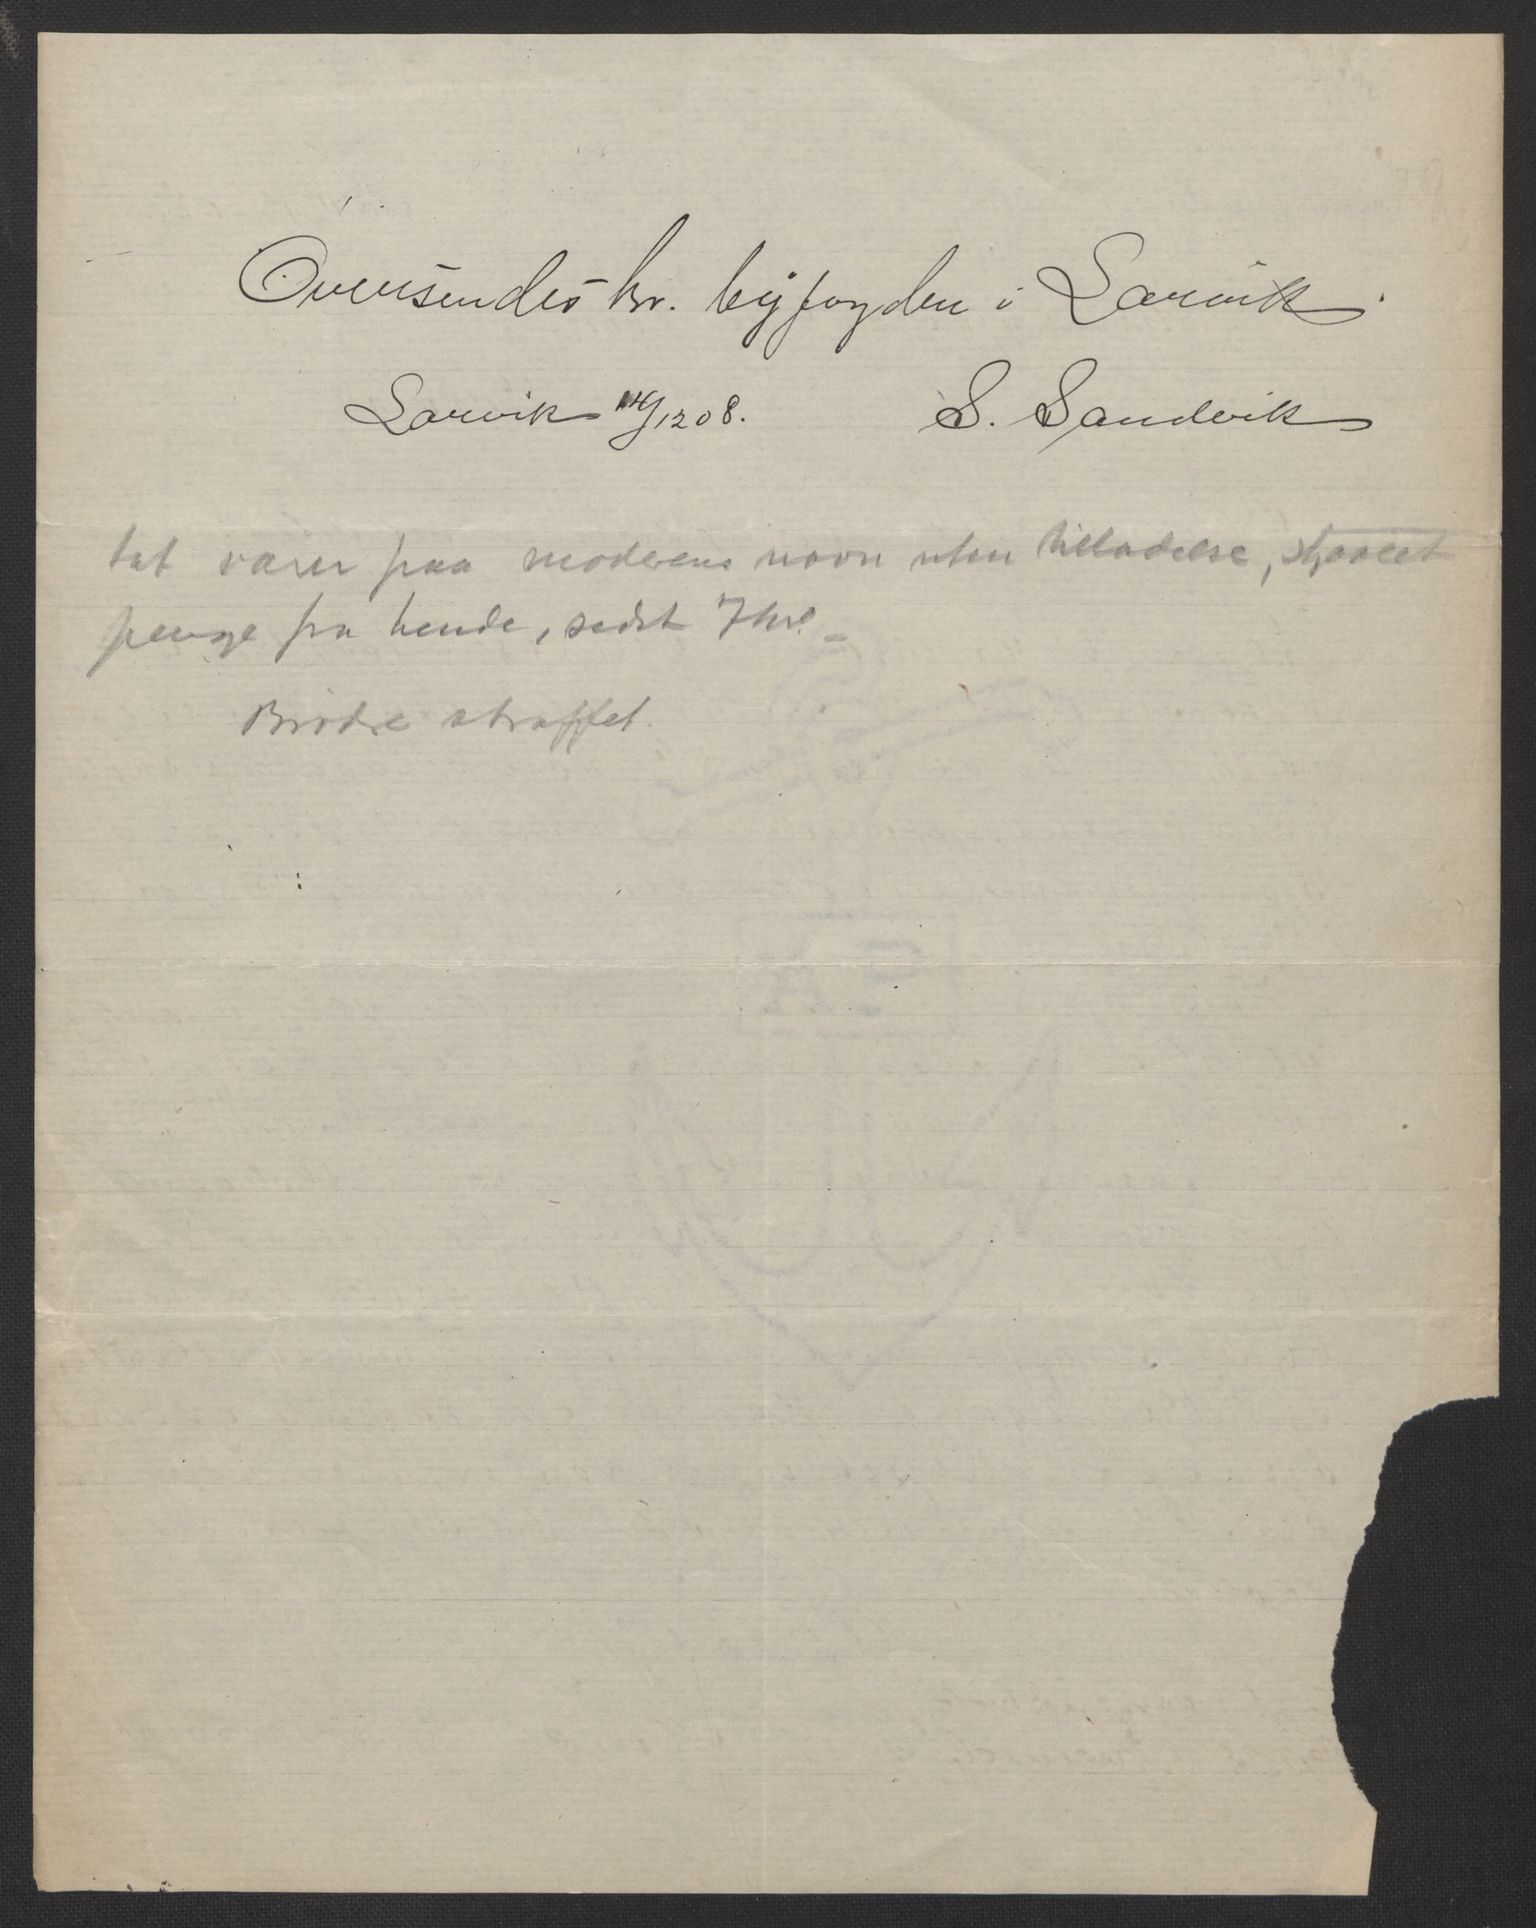 Oversendes hr. byfogden i Larvik.
Larvik 14/12 08. S. Sandvik
tat varer paa moderens navn uten tilladelse, stjaalet
penge fra hende, sidst 7 kr.
Brødre straffet.
PA